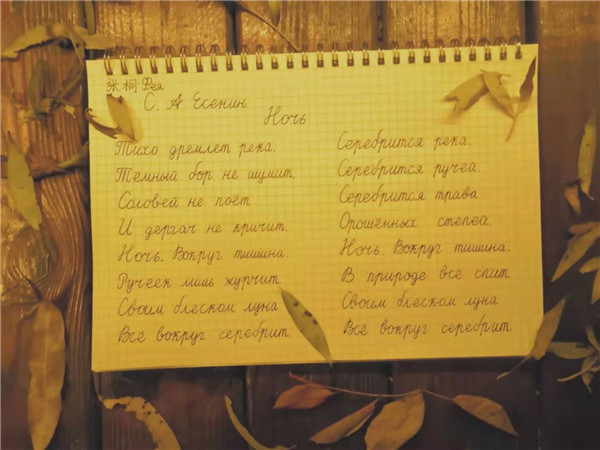 张桐 Фея
С. А Есенин
Ночь
Тихо дремлет река.
Тёмный бор не шумит.
Соловей не поёт
И дергач не кричит.
Ночь. Вокруг тишина.
Ручеек лишь журчит.
Своим блеском луна
Всё вокруг серебрит.
Серебрится река.
Серебрится ручей.
Серебрится трава
Орошённых степей.
Ночь. Вокруг тишина.
В природе всё спит.
Своим блеском луна
Всё вокруг серебрит.